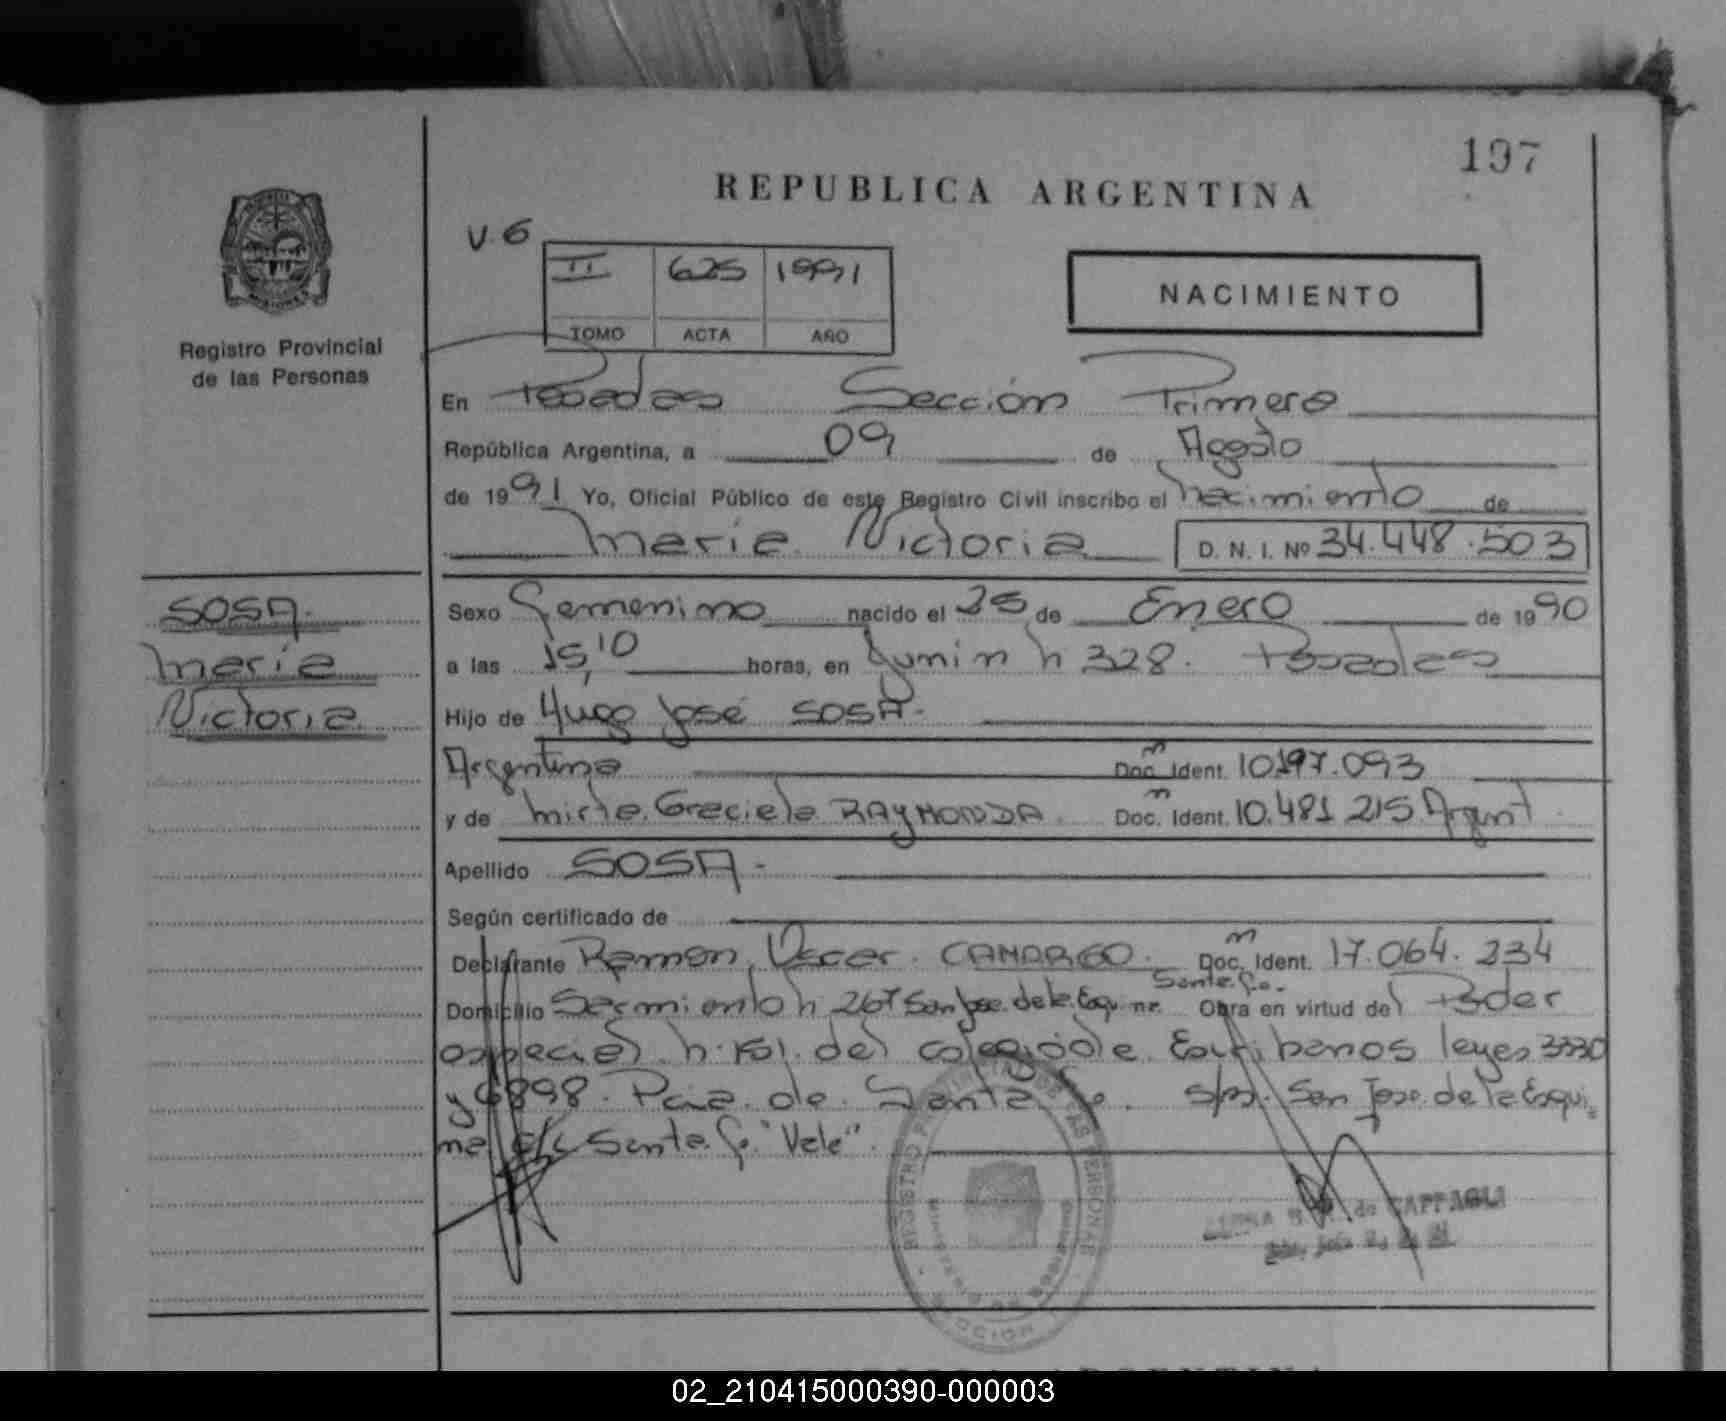 197
REPUBLICA ARGENTINA
V. 6
II 625 1991
TOMO ACTA AÑO
NACIMIENTO
MISIONES
Registro Provincial
de las Personas
En Posadas Sección Primera
República Argentina, a 09 de Agosto
de 1991 Yo, Oficial Público de este Registro Civil inscribo el nacimiento de
María Victoria D. N. I. Nº 34.448.503
SOSA.
María
Victoria
Sexo Femenino nacido el 25 de Enero de 1990
a las 15,10 horas, en Junin n 328. Posadas
Hijo de Hugo José SOSA.
Argentina Doc. Ident. 10.197.093
y de Mirta Graciela RAYMONDA Doc. Ident. 10.481.215 Argent.
Apellido SOSA.-
Según certificado de
Declarante Ramon Oscar CAMARGO. Doc. Ident. 17.064.234
Domicilio Sarmiento n 267 San Jose de la Esquina Santa Fe. Obra en virtud del Poder
especial n. 151. del colegio de Escribanos leyes 3330
y 6898. Pcia. de Santa Fe. s/n. San Jose de la Esqui-
na Santa Fe. "Vale".
REGISTRO PROVINCIAL DE LAS PERSONAS
MINISTERIO DE GOBIERNO
de CAFFAGLI
REPUBLICA ARGENTINA
02_210415000390-000003